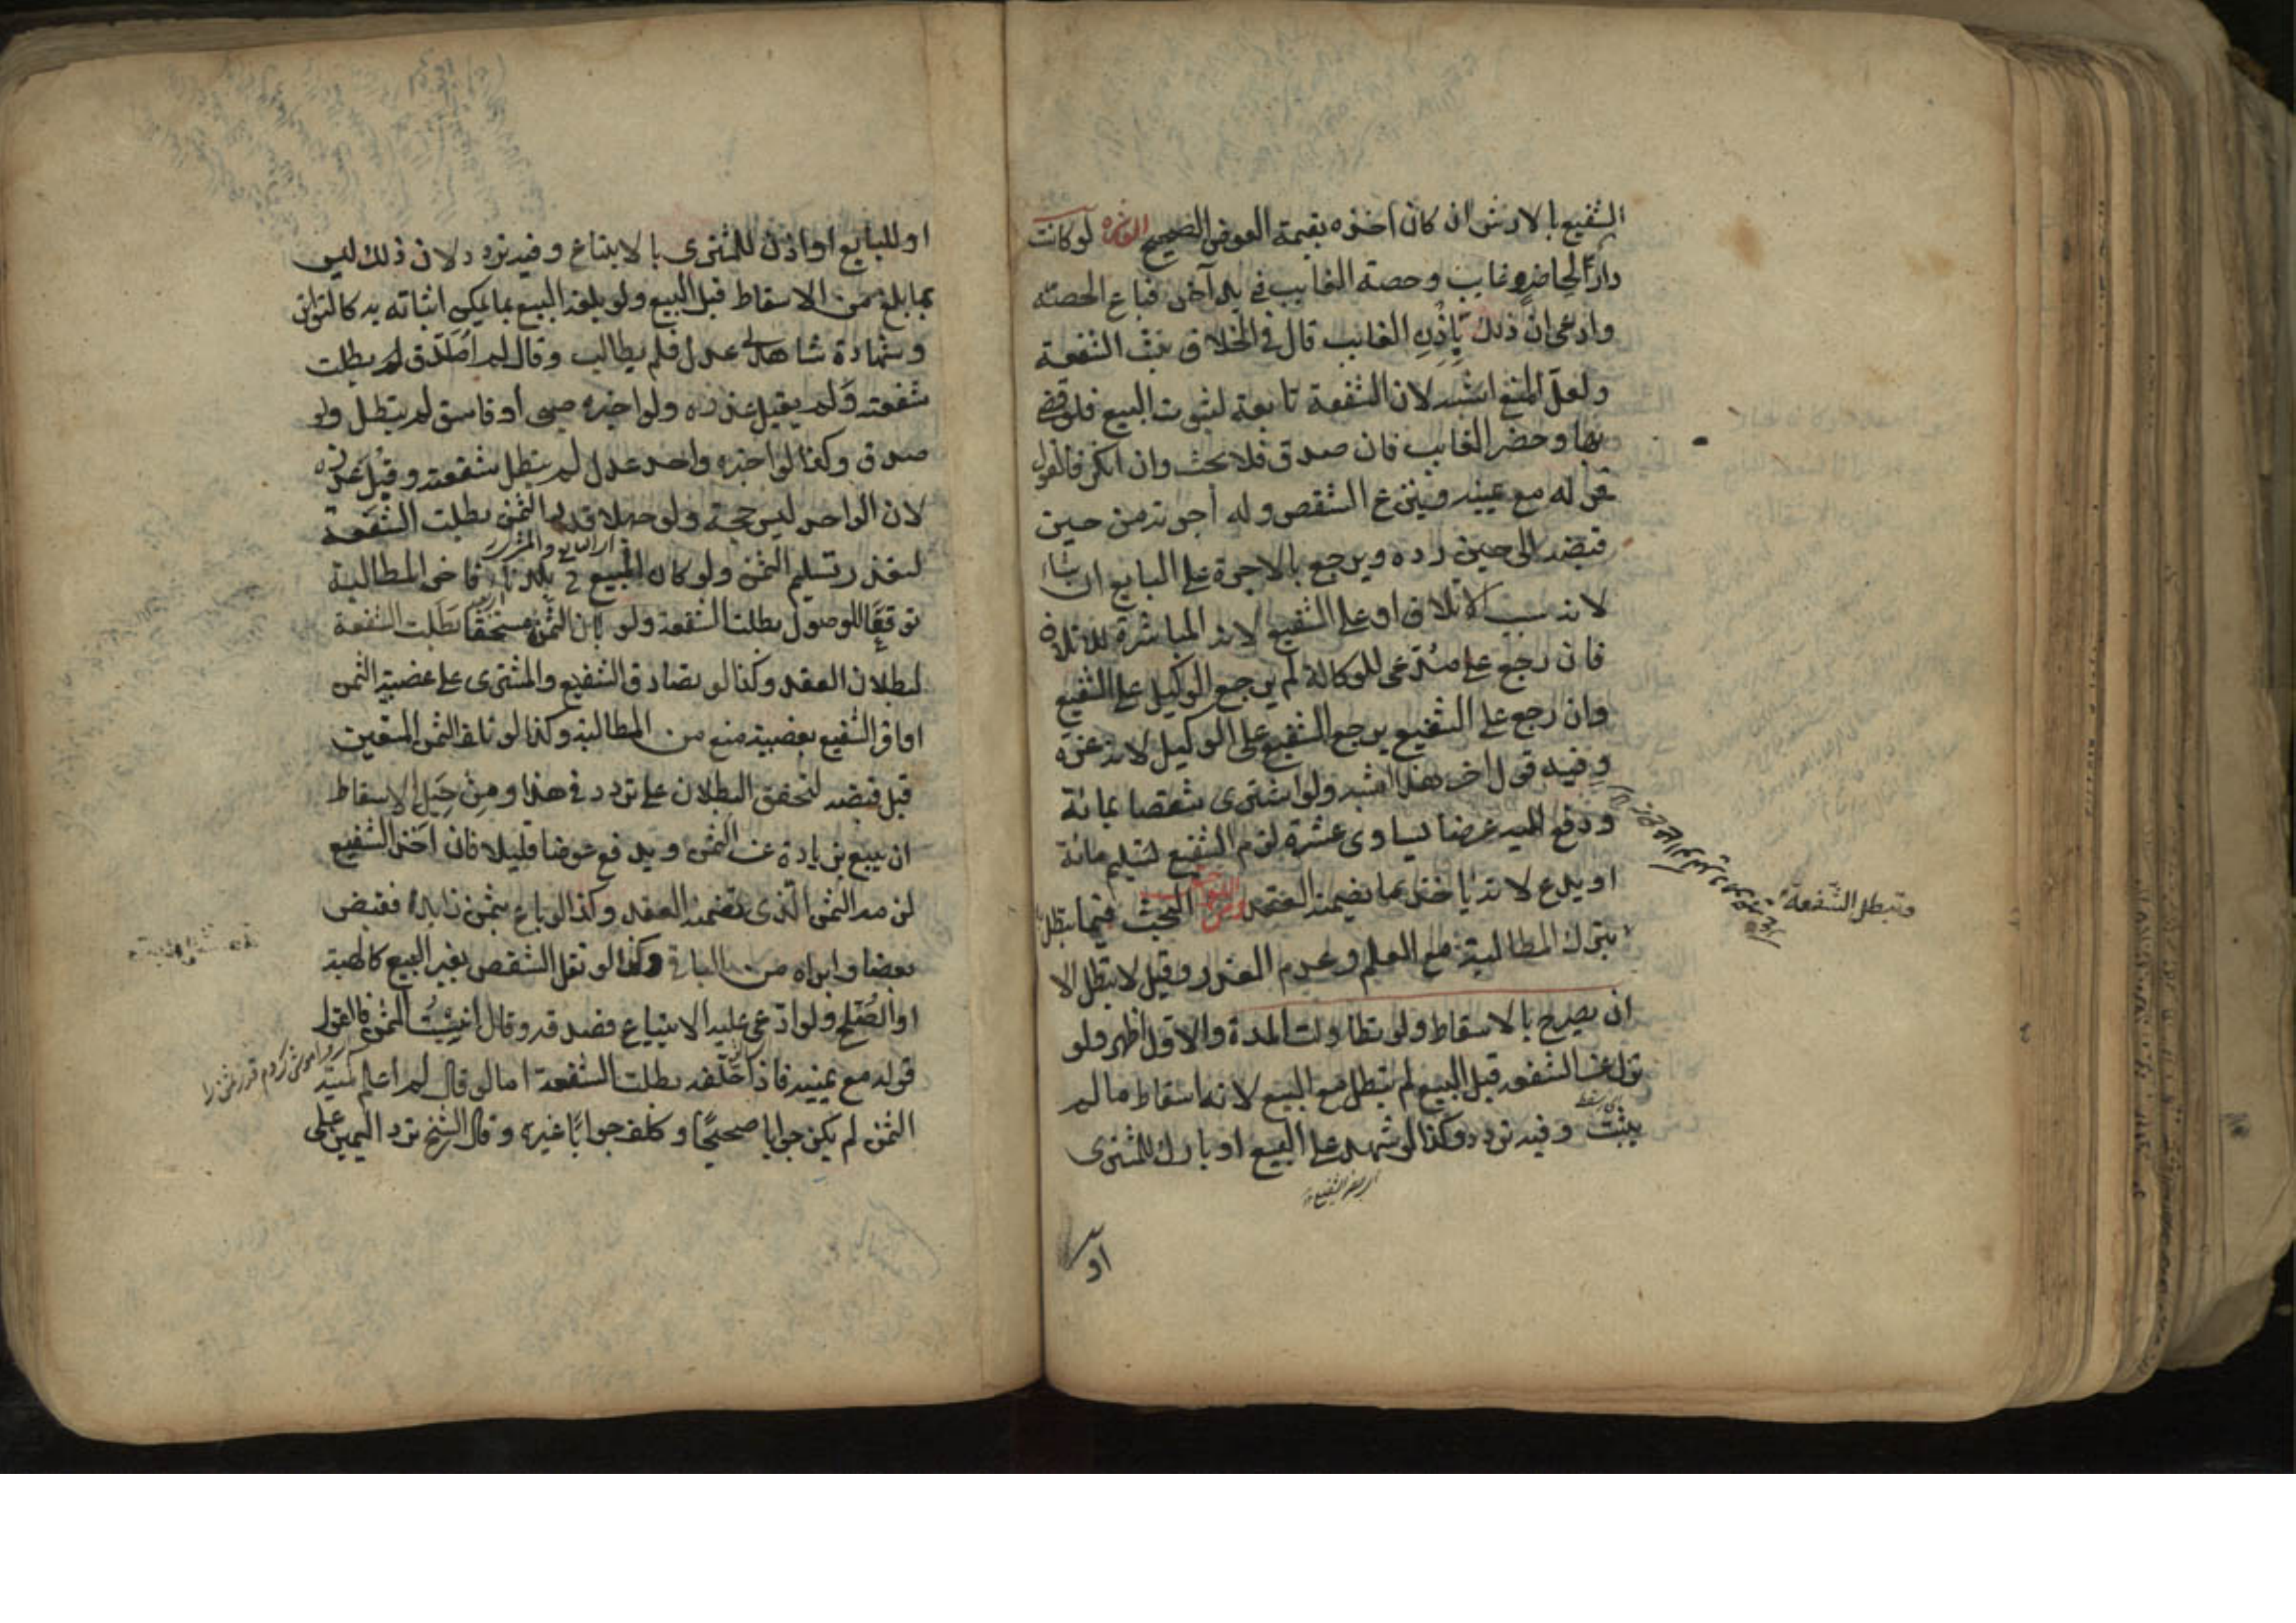 الشفيع بالارش ان كان اخذه بقيمة العوض الصحيح العاشرة لو كانت
دار لحاضر وغايب وحصة الغايب في يد آخر فباع الحصة
وادعى ان ذلك بإذن الغائب قال في الخلاف تثبت الشفعة
ولعل المنع اشبه لان الشفعة تابعة لثبوت البيع فلو قضى
بها وحضر الغايب فان صدق فلا بحث وان انكر فالقول
قوله مع يمينه وينتزع الشقص وله أجرته من حين
قبضه الى حين رده ويرجع بالاجرة على البايع ان شاء
لانه سبب الاتلاف او على الشفيع لانه المباشر للاتلاف
فان رجع على مدعى للوكالة لم يرجع الوكيل على الشفيع
وان رجع على الشفيع يرجع الشفيع على الوكيل لانه غره
وفيه قول آخر هذا اشبه ولو اشترى شقصا بمائة
ودفع اليه عرضا يساوى عشرة لزم الشفيع تسليم مائة
او يدع لانه ياخذ بما تضمنه العقد البحث فيما تبطل
وتبطل الشفعة
بترك المطالبة مع العلم وعدم العذر وقيل لا تبطل الا
ان يصرح بالاسقاط ولو تطاولت المدة والاول اظهر ولو
نزل عن الشفعة قبل البيع لم تبطل مع البيع لانه اسقاط ما لم
يثبت وفيه تردد وكذا لو شهد على البيع او بارك للمشترى
او
او للبايع او اذن للمشترى بالابتياع وفيه تردد لان ذلك ليس
بما بلغ من الاسقاط قبل البيع ولو بلغه البيع بما يمكن اثباته به كالتواتر
وشهادة شاهدى عدل فلم يطالب وقال لم اصدق بطلت
شفعته ولم يقبل عذره ولو اخبره صبى أو فاسق لم تبطل ولو
صدق وكذا لو اخبره واحد عدل لم تبطل شفعته وقبل عذره
لان الواحد ليس حجة ولو جهلا قدر الثمن بطلت الشفعة
لتعذر تسليم الثمن ولو كان المبيع في بلد فاخر المطالبة
توقعًا للوصول بطلت الشفعة ولو بان الثمن مستحقا بطلت الشفعة
لبطلان العقد وكذا لو تصادق الشفيع والمشترى على غصبية الثمن
او اقر الشفيع بغصبيته منع من المطالبة وكذا لو تلف الثمن المعين
قبل قبضه لتحقق البطلان على تردد في هذا ومن حيل الاسقاط
ان يبيع بزيادة عن الثمن ويدفع عوضا قليلا فان اخذ الشفيع
لزمه الثمن الذى تضمنه العقد وكذا لو باع بثمن زايد فقبض
بعضا وابراه من الباقى وكذا لو نقل الشقص بغير البيع كالهبة
او الصلح ولو ادعى عليه الابتياع فصدقه وقال انسيت الثمن فالقول
قوله مع يمينه فاذا حلف بطلت الشفعة اما لو قال لم اعلم كمية
الثمن لم يكن جوابا صحيحًا وكلف جوابًا غيره وقال الشيخ ترد اليمين على